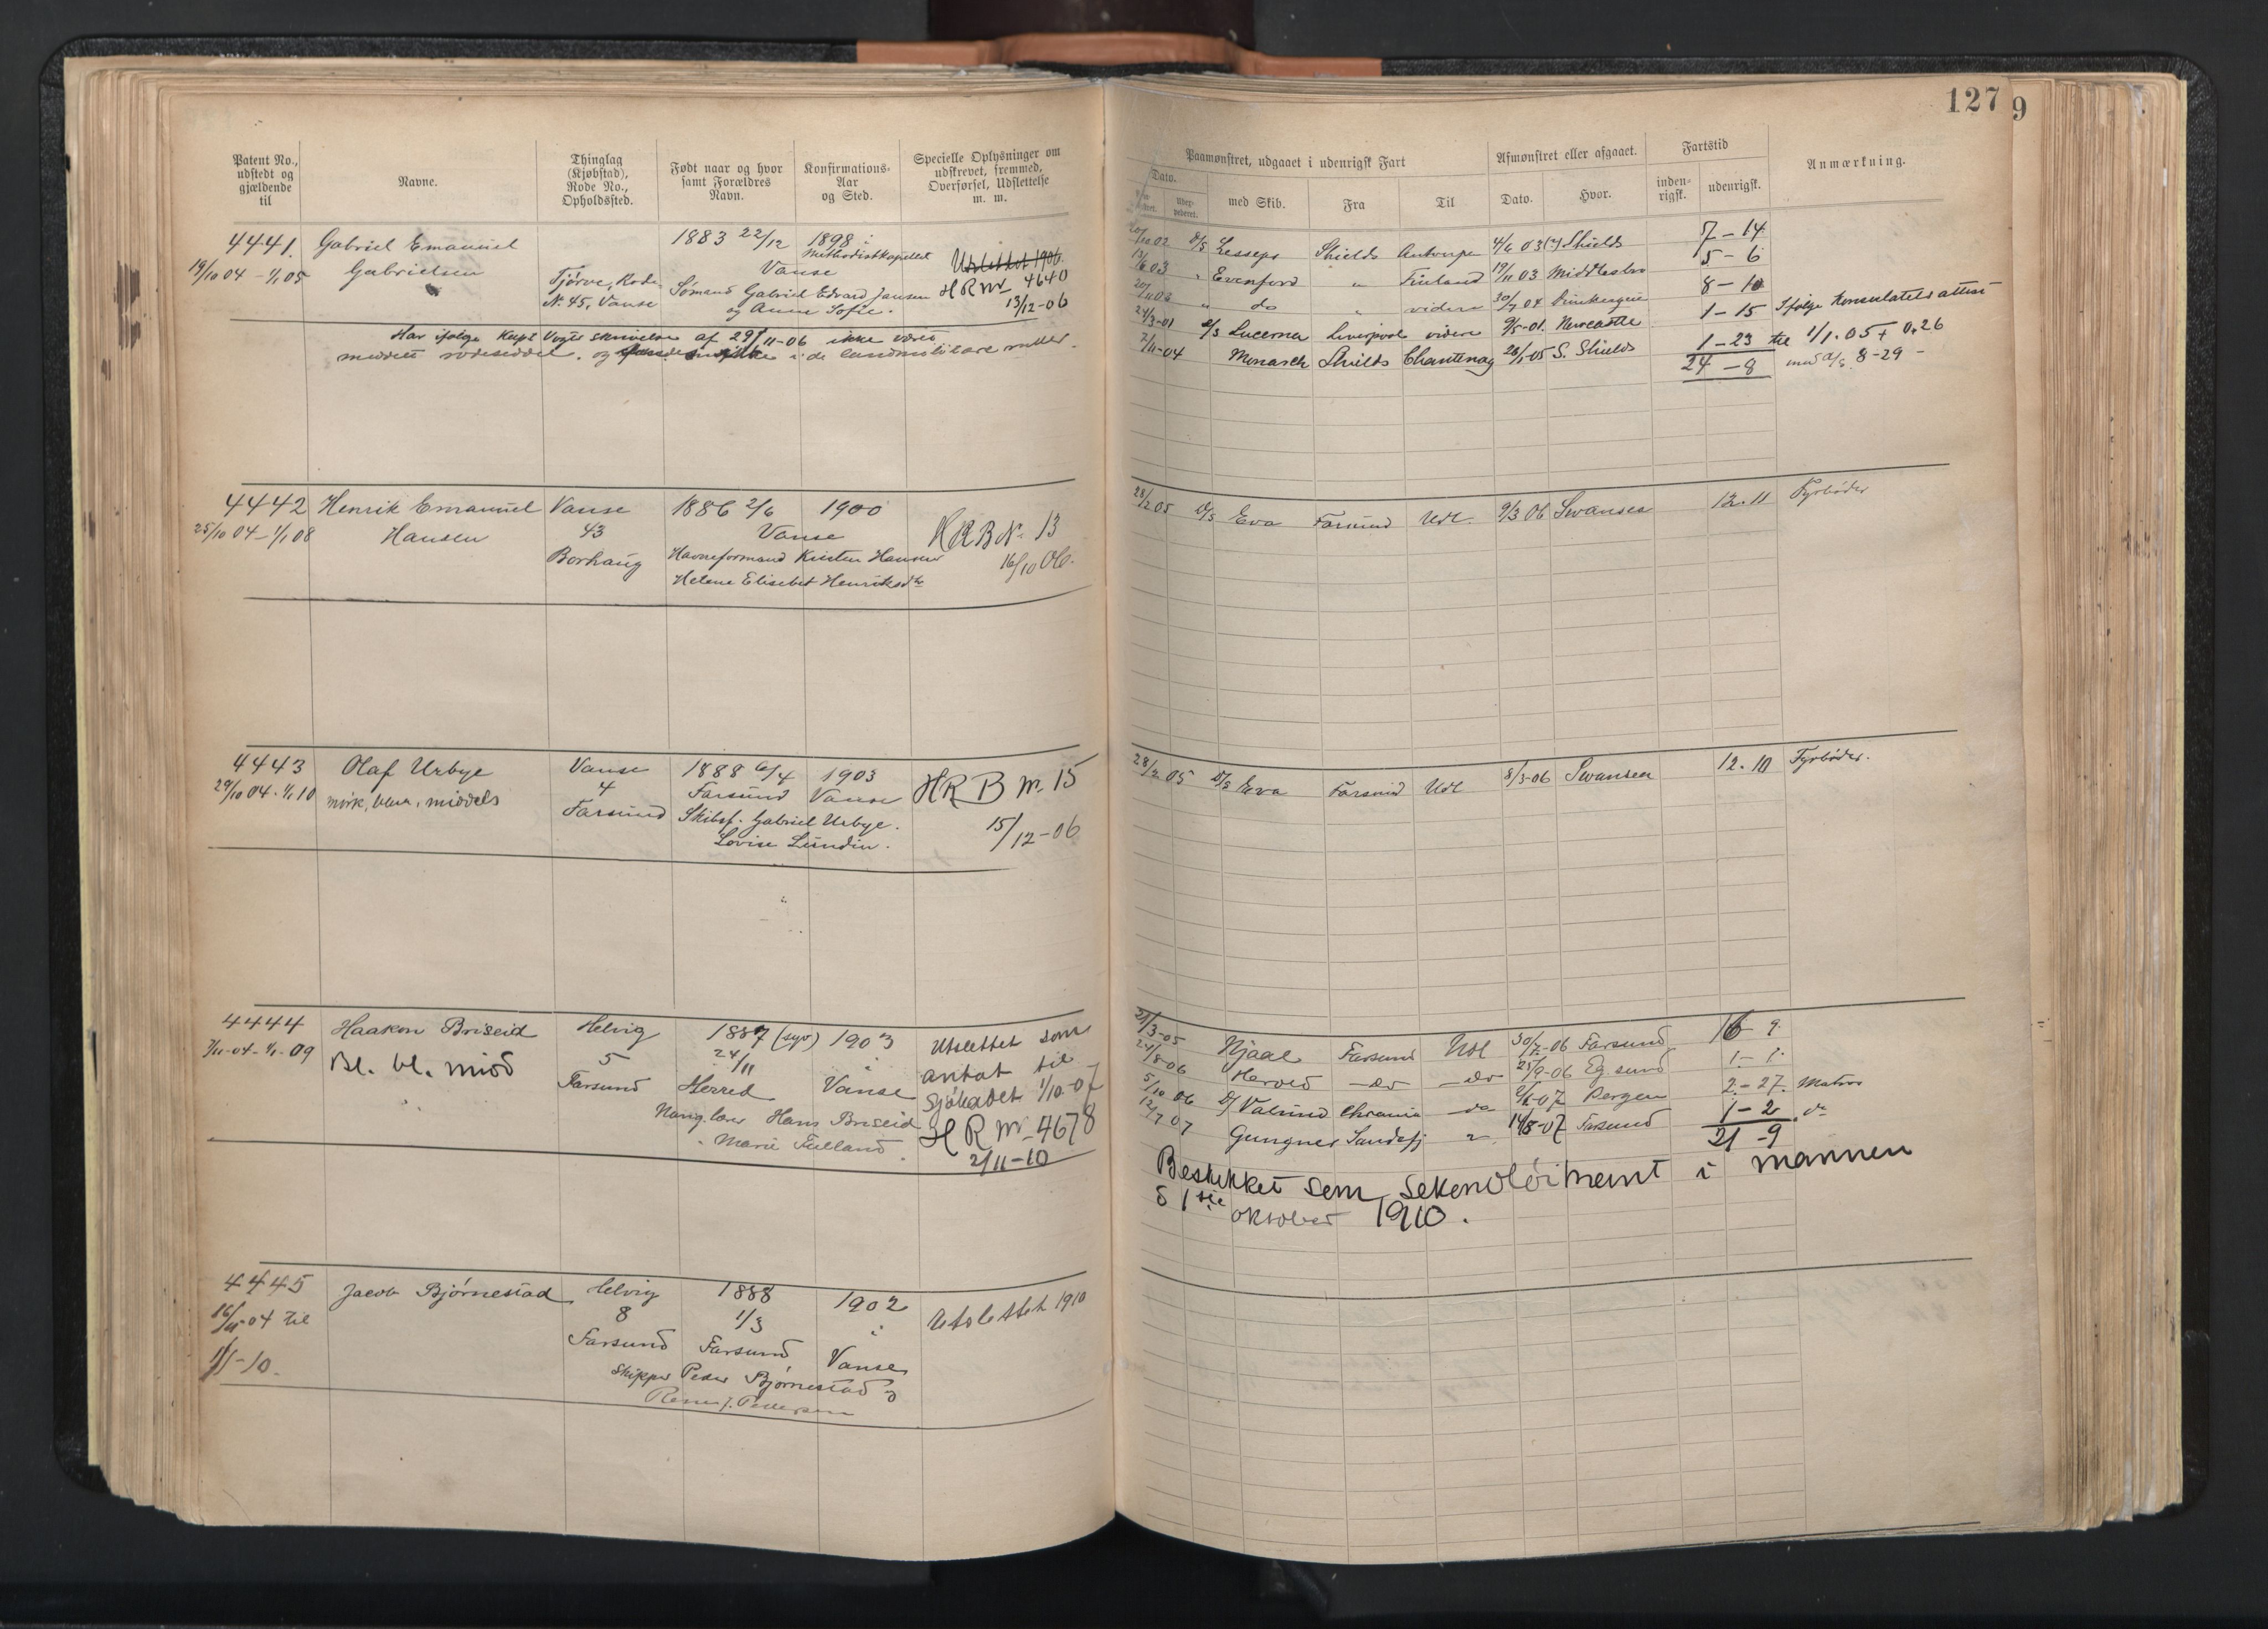 127 9
Patent No., udstedt og gjældende til
Navne.
Thinglag (Kjøbstad), Rode No., Opholdssted.
Født naar og hvor samt Forældres Navn.
Konfirmations-Aar og Sted.
Specielle Oplysninger om udskrevet, fremmed, Overførsel, Udslettelse m. m.
Paamønstret, udgaaet i udenrigsk Fart
Dato.
med Skib.
Fra
Til
Afmønstret eller afgaaet.
Dato.
Hvor.
Fartstid
inden-rigsk.
udenrigsk.
Anmærkning.
4441. Gabriel Emanuel 1883 22/12 1898 i
19/10 04 - 1/1 05 Gabrielsen Methodistkapellet
Vanse Udslettet 1906.
Tjørve, Rode H R Nr 4640
N. 45, Vanse Sømand Gabriel Edvard Jansen 13/12-06
og Anne Sofie.
Har ifølge Kapt Vogts skrivelse af 29/11-06 ikke været
meddelt rodeseddel, og i de landmilitære ruller.
10 02 D/S Lesseps Shields Antwerpen 4/6 03 Shields 7-14
13/6 03 " Evenford " Finland 19/11 03 Middlesbro 5-6
20/11 03 " do " videre 30/7 04 8-10
24/3-01 D/S Lucerna Liverpool videre 9/5-01. Newcastle 1-15 Ifølge Konsulatets attest
2/11-04 Monarch Shields Chantenay 26/1-05 S. Shields 1-23 til 1/1.05 + 0,26
24-8 8-29 -
4442 Henrik Emanuel Vanse 1886 2/6 1900
25/10 04 - 1/1 08 Hansen 43 Vanse H R B Nr. 13
Borhaug Havneformand Kristen Hansen 16/10 06.
Helene Elisebet Henriksdtr
28/2 05 D/S Eva Farsund Udl. 9/3 06 Swansea 12.11 Fyrbøder
4443 Olaf Urbye Vanse 1888 6/4 1903 H R B Nr. 15
29/10 04 - 1/1 10 mørk, blaa, middels 4 Farsund Vanse
Farsund Skibsf. Gabriel Urbye. 15/12-06
Lovise Lundin.
28/2 05 D/S Eva Farsund Udl 8/3-06 Swansea 12.10 Fyrbøder.
4444 Haakon Briseid Helvig 1887 (syv) 1903 Utslettet som
7/11-04 - 1/1-09 Bl. bl. mid 5 24/11 antat til
Farsund Herred Vanse Sjøkadet 1/10-07
Hans Briseid H R Nr. 4678
Marie Fulland. 2/11-10
21/3-05 Njaal Farsund Udl 30/7-06 Farsund 16-9.
24/8-06 Herved -do -do 25/9-06 Eg.sund 1-1.
5/10 06 D/ Valund Chrania -do 9/1-07 Bergen 2-27. Matros
12/7 07 Gungner Sandefj " 14/8-07 Farsund 1-2 do
21-9
Beskikket som sekondløitnant i marinen
d 1ste oktober 1910.
4445 Jacob Bjørnestad Helvig 1888 1902 Utslettet 1910
16/11-04 til 8 1/3 i
1/1-10. Farsund Farsund Vanse
Skipper Peder Bjørnestad o
Pettersen